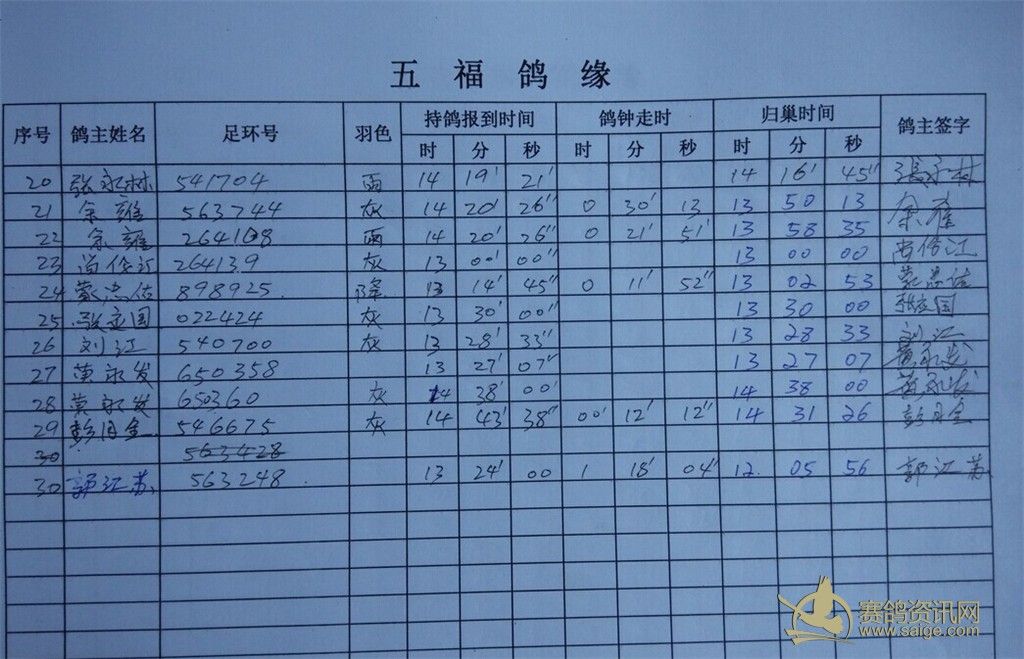 五福鸽缘
序号 鸽主姓名 足环号 羽色 持鸽报到时间 鸽钟走时 归巢时间 鸽主签字
时 分 秒 时 分 秒 时 分 秒
20 张永林 541704 雨 14 19' 21' 14 16' 45" 張永林
21 余雄 563744 灰 14 20' 26" 0 30' 13 13 50 13 余雄
22 余雄 264108 雨 14 20' 26" 0 21' 51' 13 58 35
23 264139 灰 13 00' 00" 13 00 00
24 898925 降 13 14' 45" 0 11' 52" 13 02 53
25 张立国 022424 灰 13 30' 00" 13 30 00 张立国
26 刘江 540700 灰 13 28' 33" 13 28 33 刘江
27 黄永发 650358 13 27' 07" 13 27 07 黄永发
28 黄永发 650360 灰 14 38' 00' 14 38 00 黄永发
29 彭月金 546675 灰 14 43' 38" 00' 12' 12" 14 31 26 彭月金
30 563428
30 郭江苏 563248 13 24' 00 1 18' 04' 12 05 56 郭江苏
赛鸽资讯网
www.saige.com